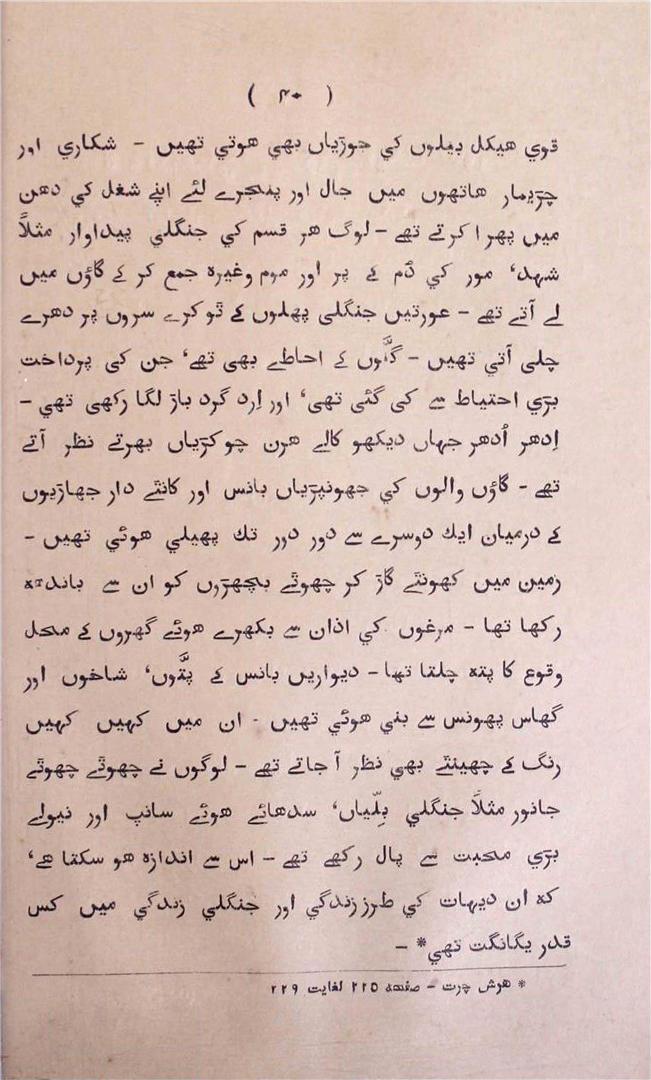 ( ۴۰ )
قوي هیکل بیلوں کي جوڑیاں بھي هوتي تھیں - شکاري اور
چڑیمار هاتھوں میں جال اور پنجرے لئے اپنے شغل کي دھن
میں پھرا کرتے تھے - لوگ هر قسم کي جنگلي پیداوار مثلاً
شہد، مور کي دُم کے پر اور موم وغیرہ جمع کر کے گاؤں میں
لے آتے تھے - عورتیں جنگلی پھلوں کے ٹوکرے سروں پر دھرے
چلی آتي تھیں - گنّوں کے احاطے بھی تھے، جن کی پرداخت
بڑي احتیاط سے کی گئی تھی، اور اِرد گرد باڑ لگا رکھی تھي -
اِدھر اُدھر جہاں دیکھو کالے هرن چوکڑیاں بھرتے نظر آتے
تھے - گاؤں والوں کي جھونپڑیاں بانس اور کانٹے دار جھاڑیوں
کے درمیان ایك دوسرے سے دور دور تك پھیلي هوئي تھیں -
زمین میں کھونٹے گاڑ کر چھوٹے بچھڑوں کو ان سے باندھ
رکھا تھا - مرغوں کي اذان سے بکھرے هوئے گھروں کے محل
وقوع کا پتہ چلتا تھا - دیواریں بانس کے پتّوں، شاخوں اور
گھاس پھونس سے بني هوئي تھیں - ان میں کہیں کہیں
رنگ کے چھینٹے بھي نظر آ جاتے تھے - لوگوں نے چھوٹے چھوٹے
جانور مثلاً جنگلي بِلّیاں، سدھائے هوئے سانپ اور نیولے
بڑي محبت سے پال رکھے تھے - اس سے اندازہ هو سکتا هے،
کہ ان دیہات کي طرز زندگي اور جنگلي زندگي میں کس
قدر یگانگت تھي* -
* هرش چرت - صفحہ ۲۲۵ لغایت ۲۲۹